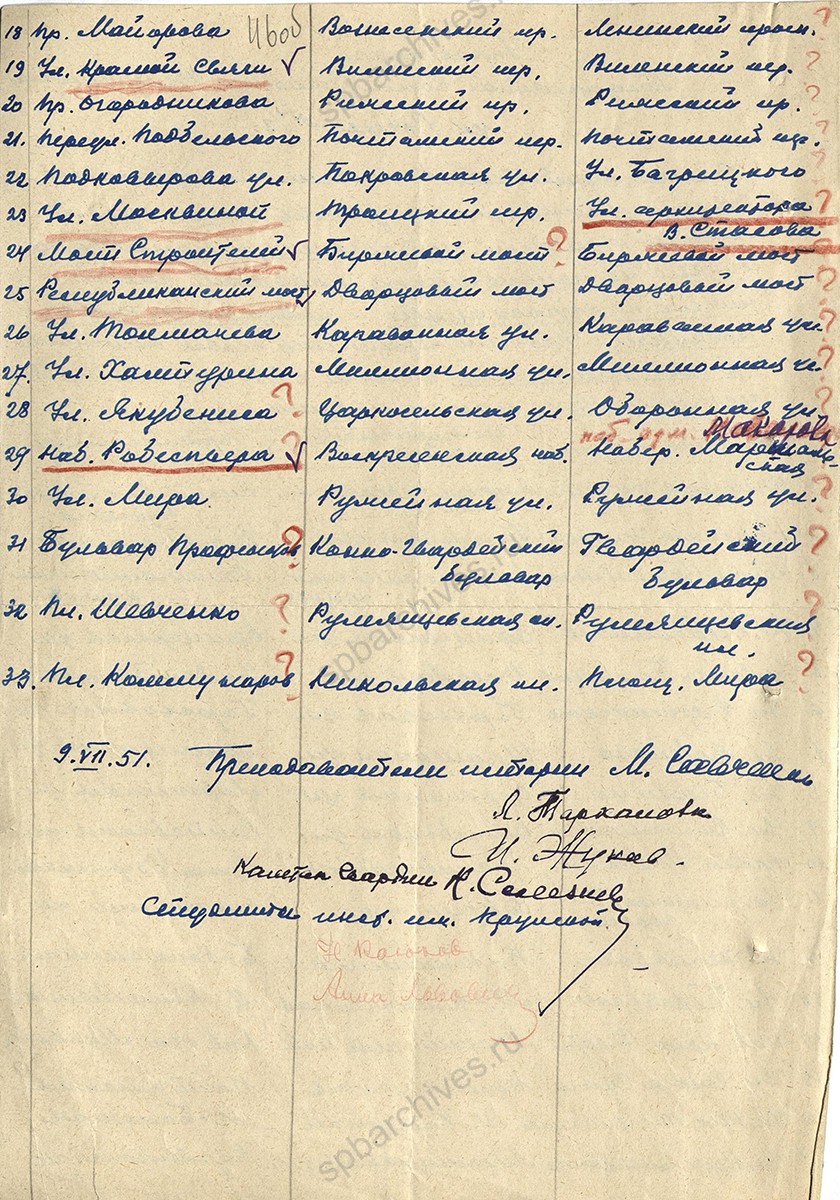 18 Пр. Майорова Вознесенский пр. Ленинский просп. ?
19 Ул. Красной Связи ✓ Виленский пер. Виленский пер. ?
20 Пр. Огородникова Рижский пр. Рижский пр. ?
21. Переул. Подбельского Почтамский пер. Почтамский пер. ?
22 Подковырова ул. Покровская ул. Ул. Багрицкого ?
23 Ул. Москвиной Троицкий пр. Ул. архитектора ?
В. Стасова
24 Мост Строителей ✓ Биржевой мост ? Биржевой мост ?
25 Республиканский мост ✓ Дворцовый мост Дворцовый мост ?
26 Ул. Толмачева Караванная ул. Караванная ул. ?
27. Ул. Халтурина Миллионная ул. Миллионная ул. ?
28 Ул. Якубениса ? Царкосельская ул. Оборонная ул. ?
наб. адм. Макарова
29 Наб. Робеспьера ? ✓ Воскресенская наб. Набер.
30 Ул. Мира Ружейная ул. Ружейная ул. ?
31 Бульвар Профсоюзов ? Конно-Гвардейский Гвардейский ?
Бульвар Бульвар
32 Пл. Шевченко ? Румянцевская пл. Румянцевская ?
пл.
33. Пл. Коммунаров ? Никольская пл. Площ. Мира ?
9.VII.51. Преподаватели истории М.
Л. Тарханова
И. Жуков
Капитан гвардии К. Селезнев
Студенты инст. им. Крупской
Н
Анна
spbarchives.ru
spbarchives.ru
spbarchives.ru